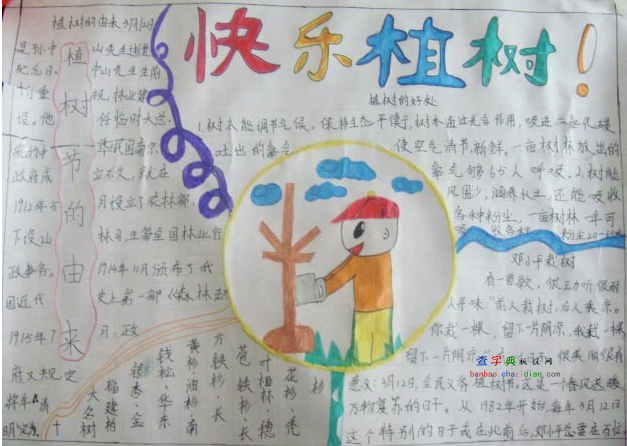 快乐植树！
植树的由来3月12日
植树节的由来
是孙中山先生逝世
纪念日。中山先生生前
十分重视林业建
设。他任临时大总
统的中华民国南京
政府成立不久，就在
1912年5月设立了农林部，
下设山林司，主管全国林业行
政事务。1914年11月颁布了我
国近代史上第一部《森林法》
1915年7月，政
府又规定
将年
清
明
植树的好处
1.树木能调节气候，保持生态平衡，树木通过光合作用，吸进二氧化碳
吐出的氧气 使空气清新，新鲜。一亩树林放出的
氧气够65人呼吸。2.树能
风固沙，涵养水土，还能吸收
各种粉尘，一亩树林一年可
吸收各种粉尘20-60
邓小平栽树
有一首歌，很
人寻味："前人栽树，后人乘凉。
你栽一棵，留下一片阴凉，我栽一棵
留下一片阴凉
意义：3月12日，全民义务植树节。这是一个春风送暖
万物复苏的日子。从1982年开始，每年3月12日
这个特别的日子
十大名树
银杏、金
钱松、华东
黄杉、油杉
方铁杉、长
苞铁杉、长
叶榧
花杉、秃
杉
查字典板报网
banbao.chazidian.com